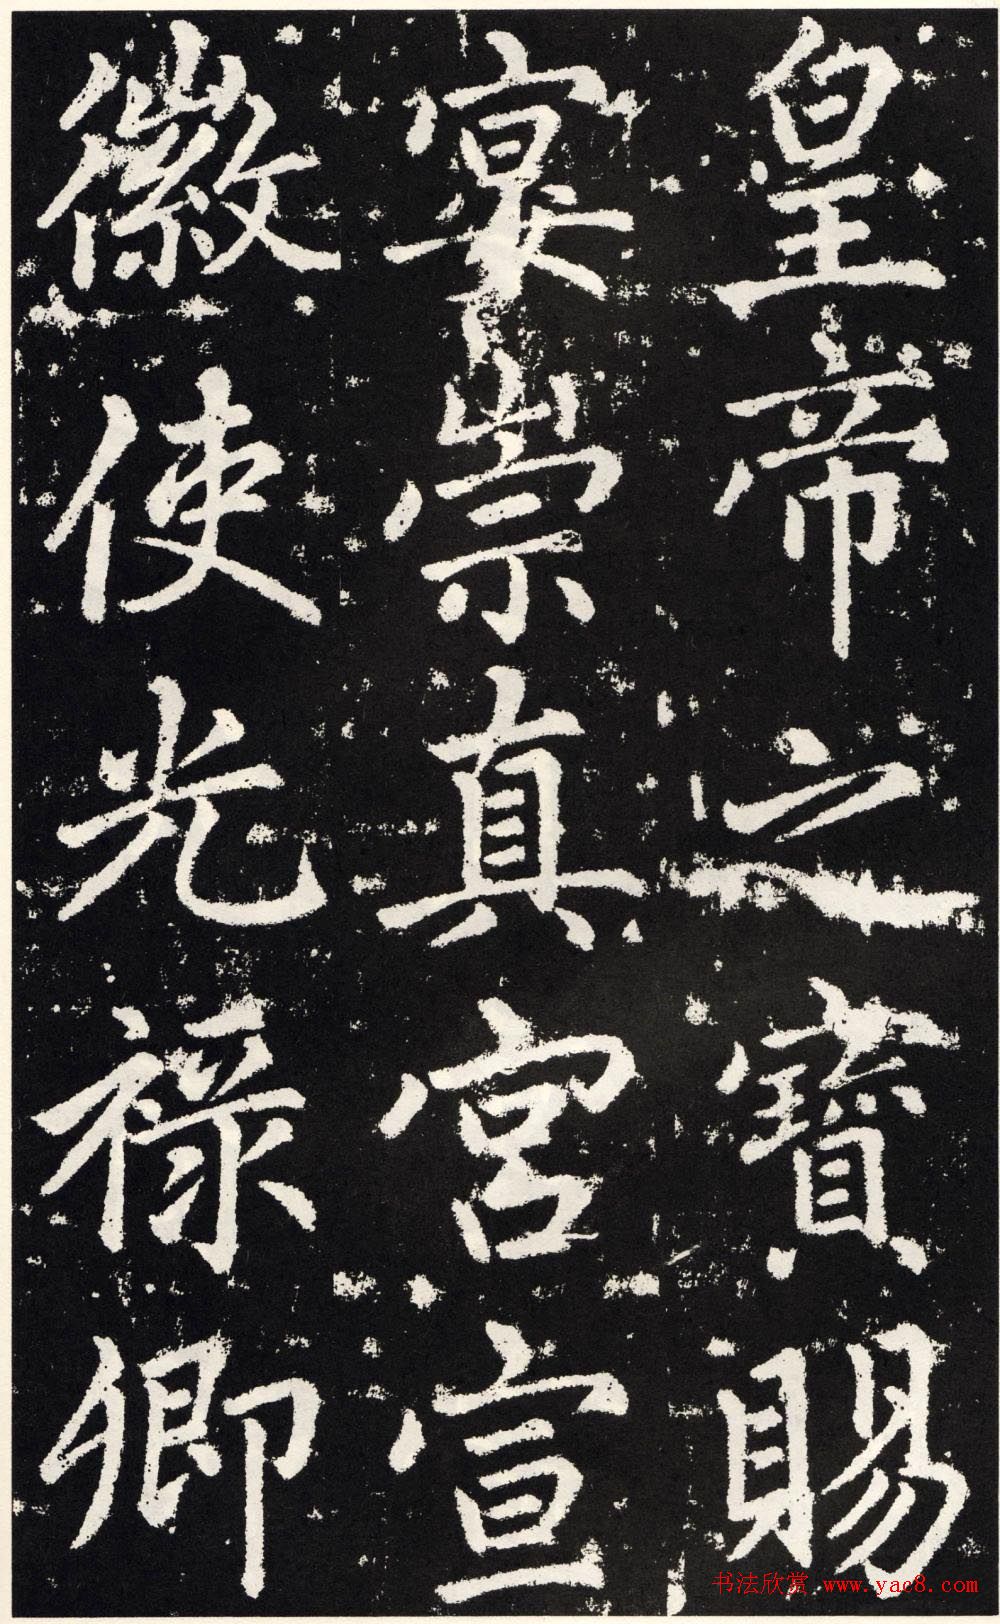 皇帝之寶賜
宴崇真宮宣
徽使光祿卿
书法欣赏 www.yac8.com